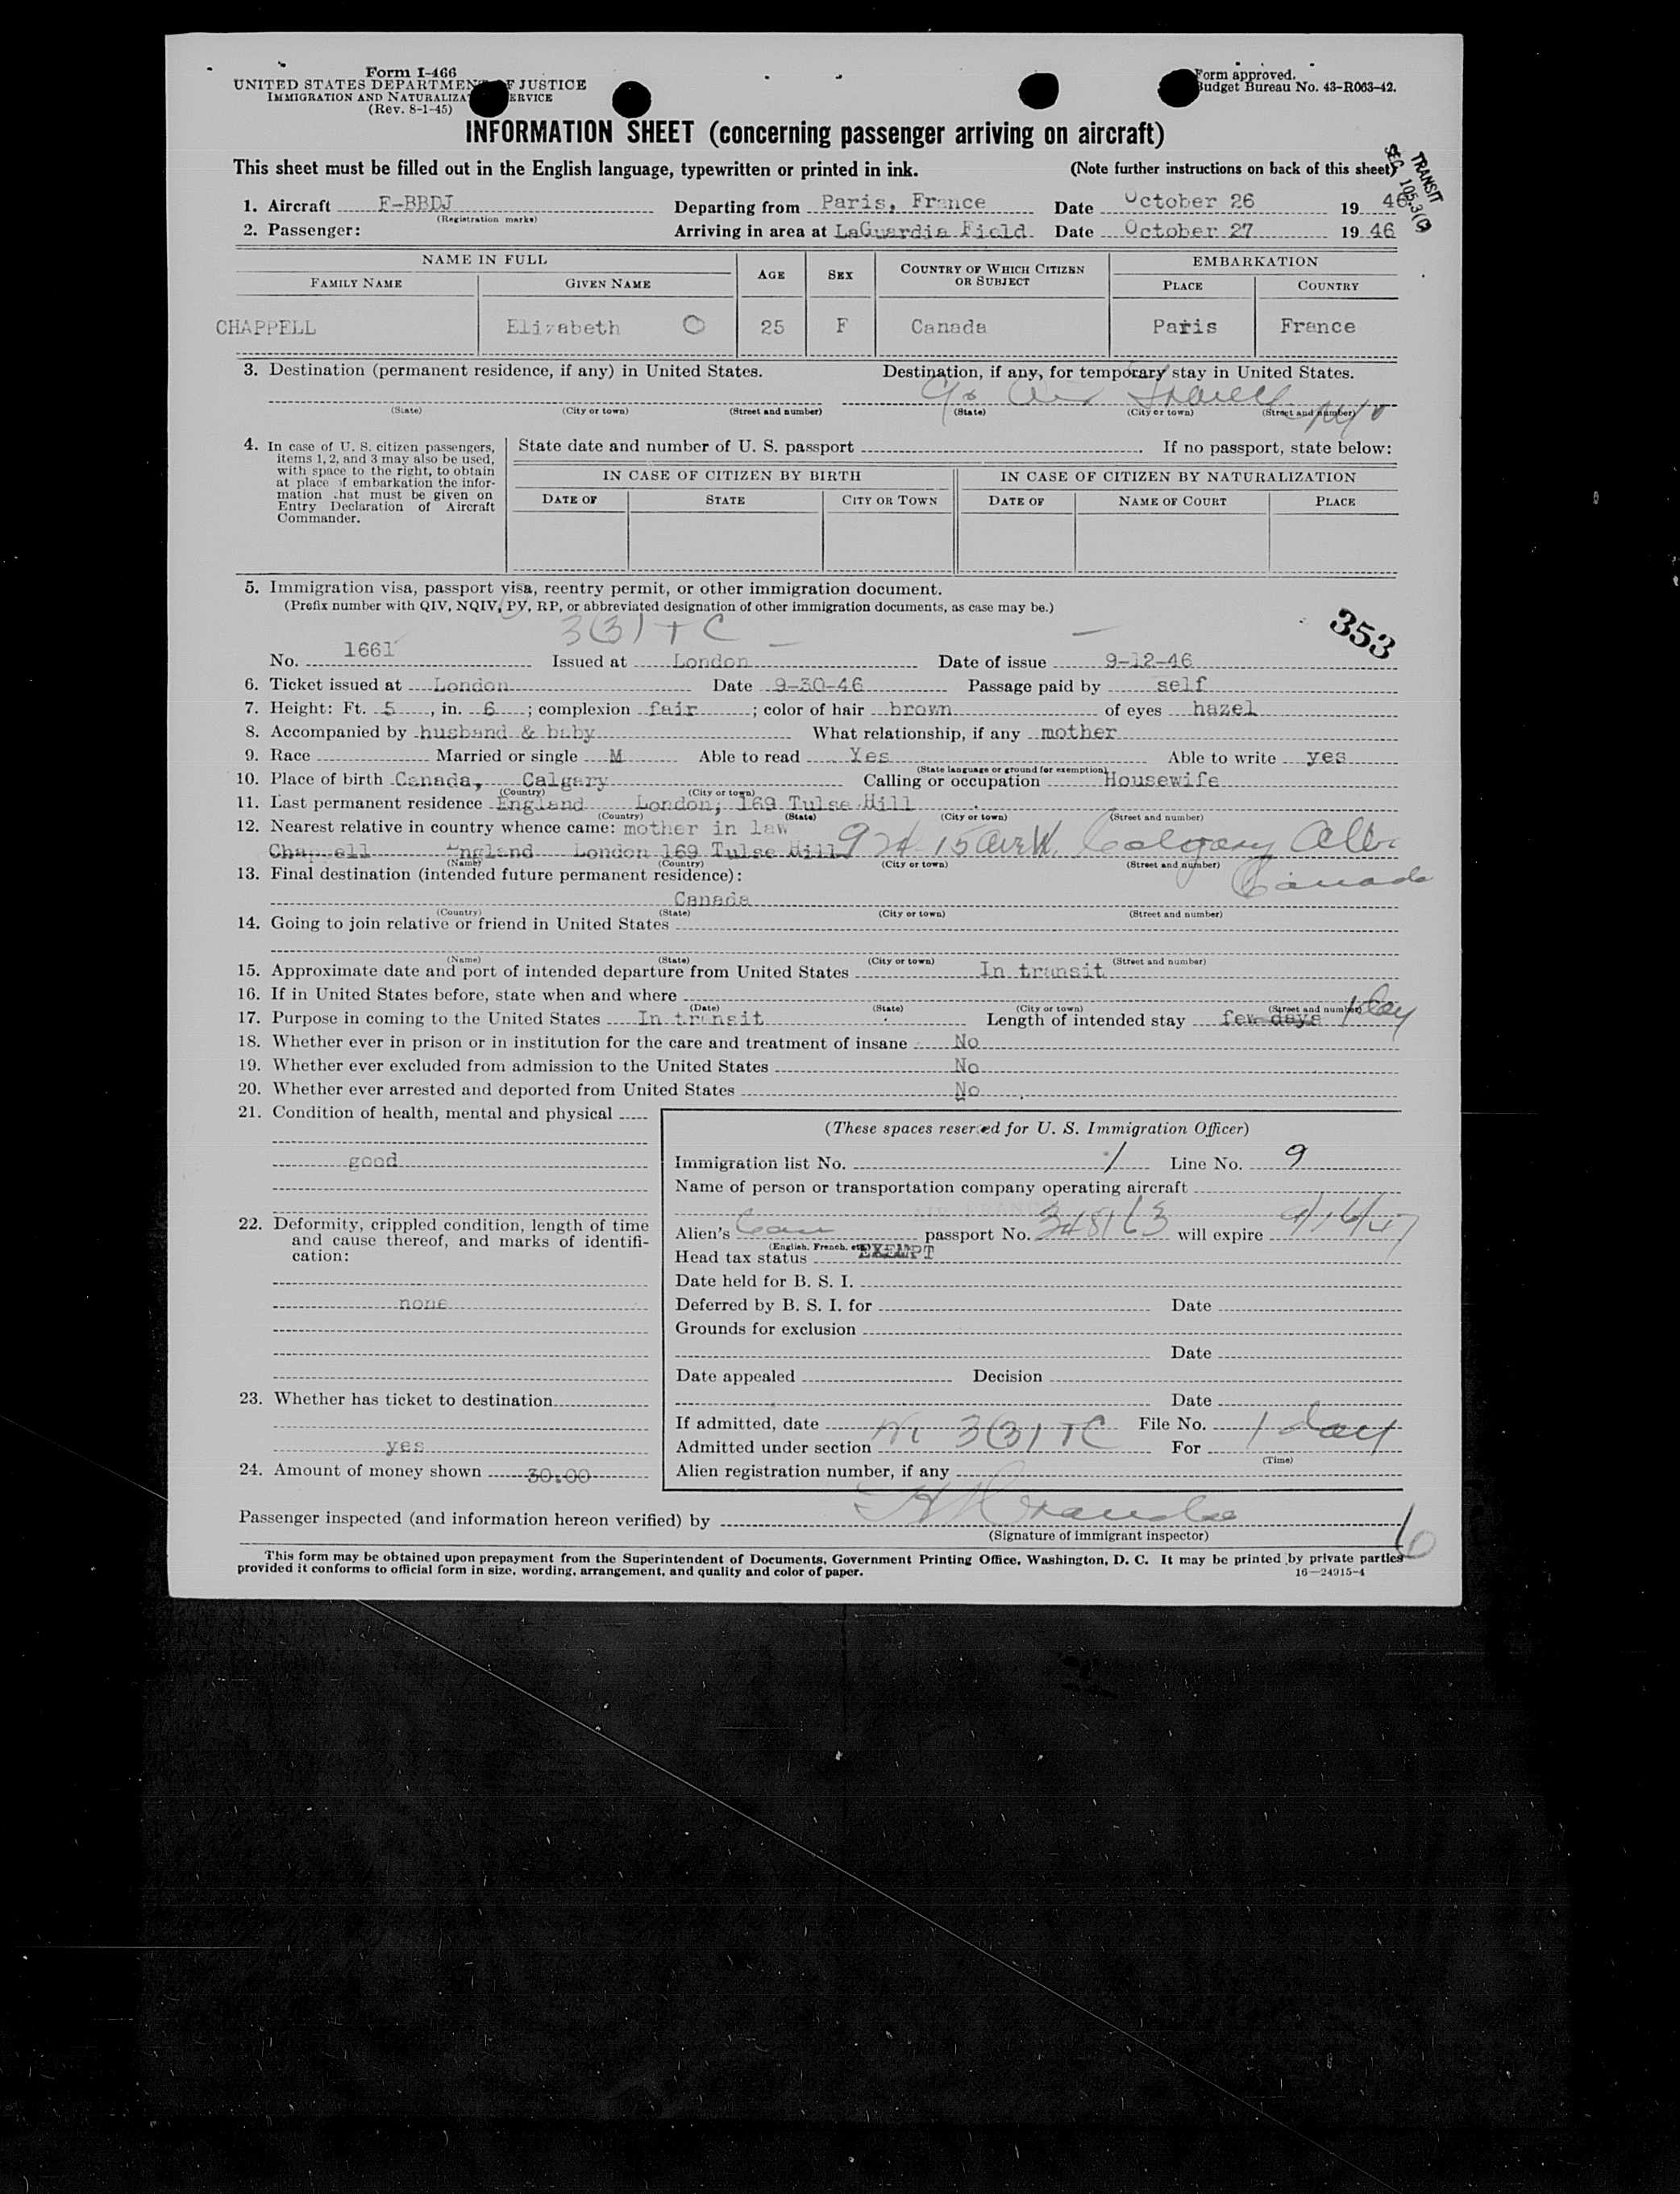 Form I-466
UNITED STATES DEPARTMENT OF JUSTICE
IMMIGRATION AND NATURALIZATION SERVICE
(Rev. 8-1-45)
Form approved.
Budget Bureau No. 43-R063-42.
INFORMATION SHEET (concerning passenger arriving on aircraft)
This sheet must be filled out in the English language, typewritten or printed in ink. (Note further instructions on back of this sheet)
TRANSIT
SEC. 105.3(C)
1. Aircraft F-BBDJ Departing from Paris, France Date October 26 1946
(Registration marks)
2. Passenger: Arriving in area at LaGuardia Field Date October 27 1946
NAME IN FULL AGE SEX COUNTRY OF WHICH CITIZEN OR SUBJECT EMBARKATION
FAMILY NAME GIVEN NAME PLACE COUNTRY
CHAPPELL Elizabeth O 25 F Canada Paris France
3. Destination (permanent residence, if any) in United States. Destination, if any, for temporary stay in United States.
c/o Air
(State) (City or town) (Street and number) (State) (City or town) (Street and number)
4. In case of U. S. citizen passengers, items 1, 2, and 3 may also be used, with space to the right, to obtain at place of embarkation the information that must be given on Entry Declaration of Aircraft Commander.
State date and number of U. S. passport . If no passport, state below:
IN CASE OF CITIZEN BY BIRTH IN CASE OF CITIZEN BY NATURALIZATION
DATE OF STATE CITY OR TOWN DATE OF NAME OF COURT PLACE
5. Immigration visa, passport visa, reentry permit, or other immigration document.
(Prefix number with QIV, NQIV, PV, RP, or abbreviated designation of other immigration documents, as case may be.)
3(3) TC
353
No. 1661 Issued at London Date of issue 9-12-46
6. Ticket issued at London Date 9-30-46 Passage paid by self
7. Height: Ft. 5, in. 6; complexion fair; color of hair brown of eyes hazel
8. Accompanied by husband & baby What relationship, if any mother
9. Race Married or single M Able to read Yes Able to write yes
(State language or ground for exemption)
10. Place of birth Canada, Calgary Calling or occupation Housewife
(Country) (City or town)
11. Last permanent residence England London, 169 Tulse Hill
(Country) (State) (City or town) (Street and number)
12. Nearest relative in country whence came: mother in law
Chappell England London 169 Tulse Hill 924 15 Ave W. Calgary Alta
(Name) (Country) (City or town) (Street and number)
Canada
13. Final destination (intended future permanent residence):
Canada
(Country) (State) (City or town) (Street and number)
14. Going to join relative or friend in United States
(Name) (State) (City or town) (Street and number)
15. Approximate date and port of intended departure from United States In transit
16. If in United States before, state when and where
(Date) (State) (City or town) (Street and number)
17. Purpose in coming to the United States In transit Length of intended stay few days 1 day
18. Whether ever in prison or in institution for the care and treatment of insane No
19. Whether ever excluded from admission to the United States No
20. Whether ever arrested and deported from United States No
21. Condition of health, mental and physical
good
22. Deformity, crippled condition, length of time and cause thereof, and marks of identification:
none
23. Whether has ticket to destination
yes
24. Amount of money shown 30.00
(These spaces reserved for U. S. Immigration Officer)
Immigration list No. 1 Line No. 9
Name of person or transportation company operating aircraft
AIR FRANCE
Alien's Can passport No. 348163 will expire 9/16/47
(English, French, etc.)
Head tax status EXEMPT
Date held for B. S. I.
Deferred by B. S. I. for Date
Grounds for exclusion
Date
Date appealed Decision
Date
If admitted, date File No.
Admitted under section 3(3) TC For 1 day
(Time)
Alien registration number, if any
Passenger inspected (and information hereon verified) by
(Signature of immigrant inspector)
This form may be obtained upon prepayment from the Superintendent of Documents, Government Printing Office, Washington, D. C. It may be printed by private parties
provided it conforms to official form in size, wording, arrangement, and quality and color of paper. 16—24915-4